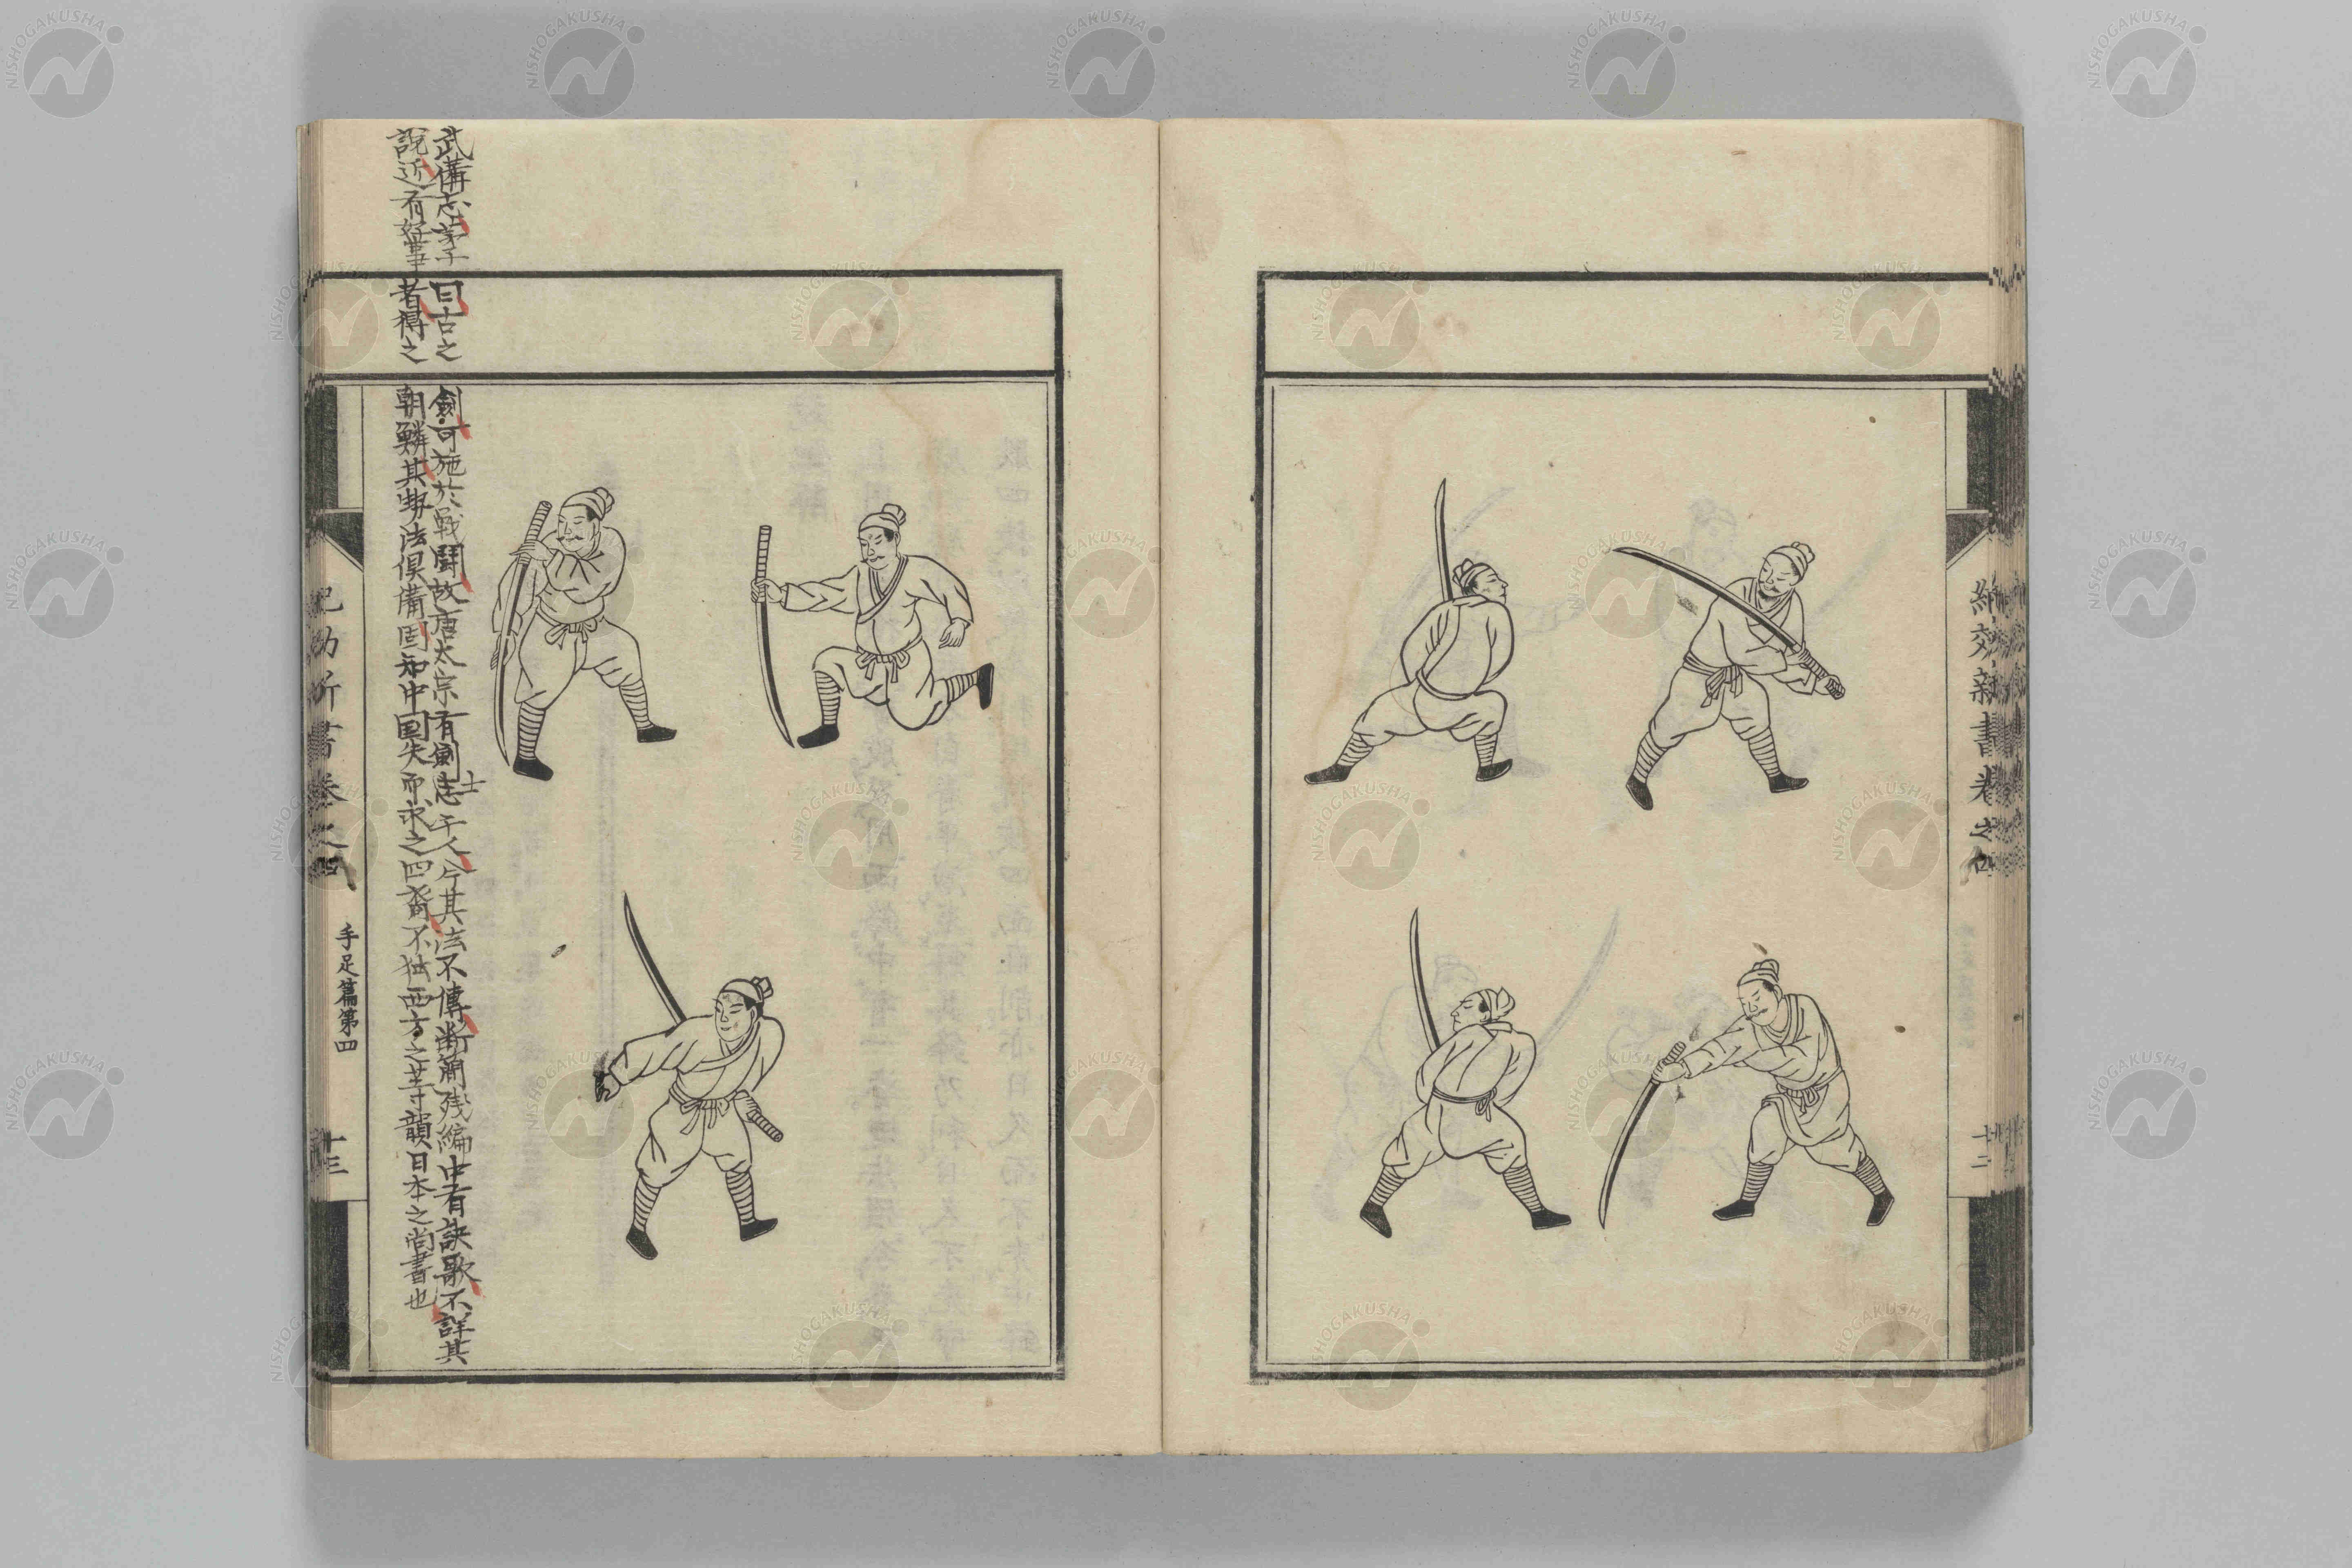 紀効新書卷之四
十二
武備志茅子曰古之劍可施於戰鬪故唐太宗有劍志士千人今其法不傳断簡残編中有訣歌不詳其
說近有好事者得之朝鮮其勢法俱備固知中国失而求之四裔不独西方之等韻日本之尚書也
紀効新書卷之四
手足篇第四
十三
NISHOGAKUSHA